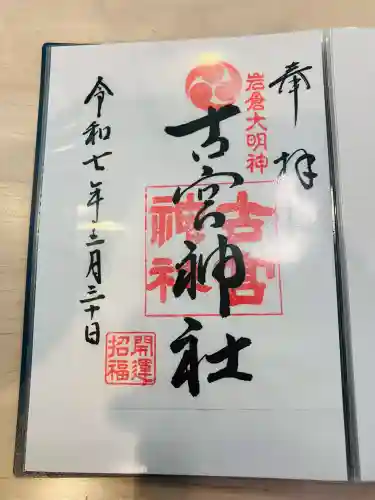 奉拝
岩倉大明神
古宮神社
古宮
神社
令和七年三月三十日
開運
招福